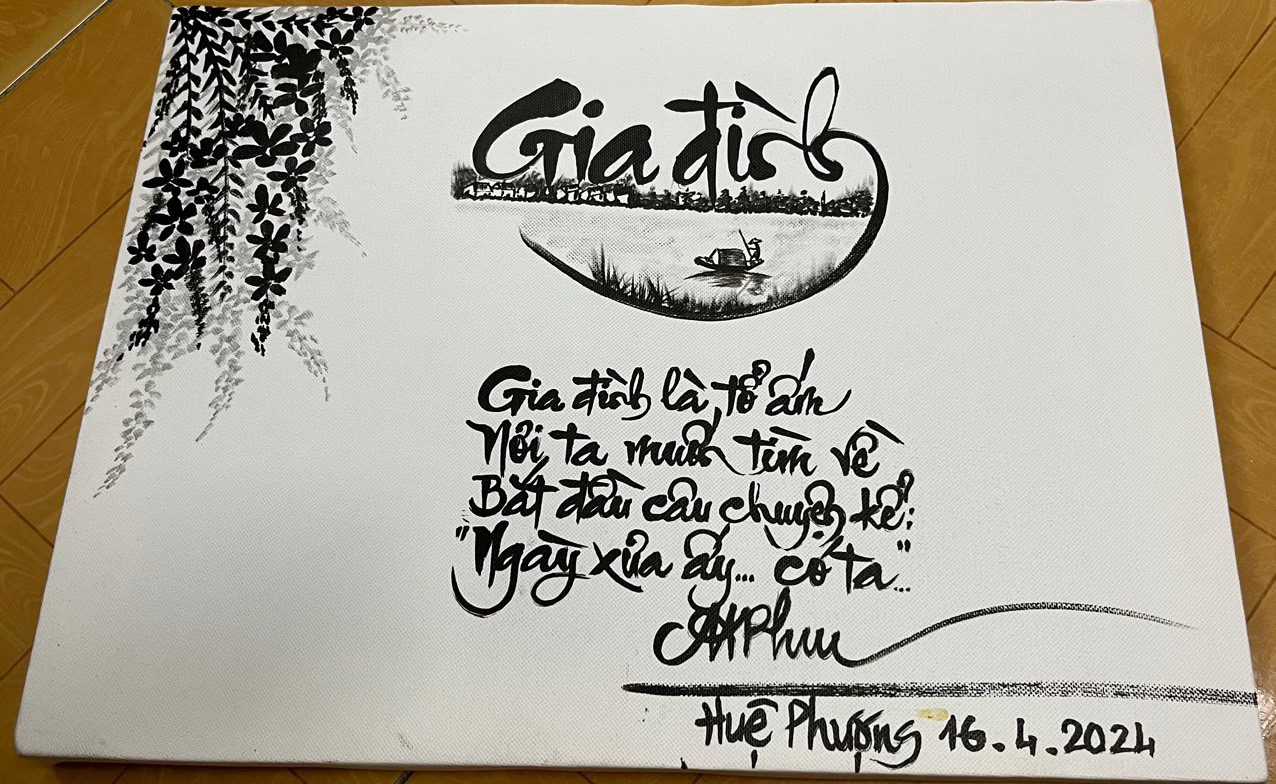 Gia đình
Gia đình là tổ ấm
Nơi ta muốn tìm về
Bắt đầu câu chuyện kể:
"Ngày xưa ấy... có ta"...
Huệ Phượng 16.4.2024